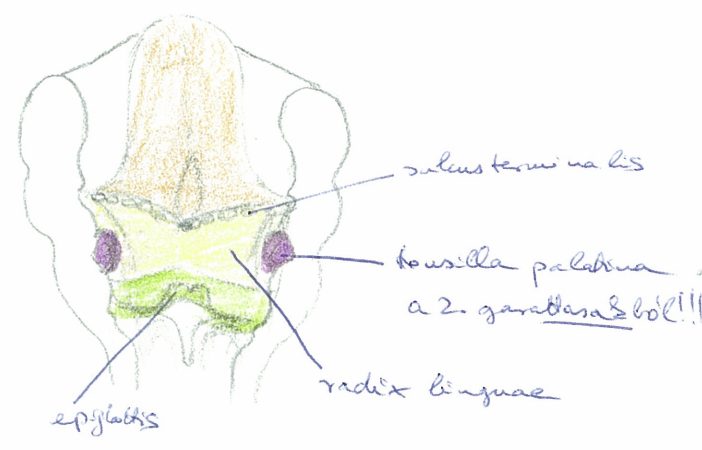 sulcus terminalis
tonsilla palatina
a 2. garattasakból!!!
radix linguae
epiglottis